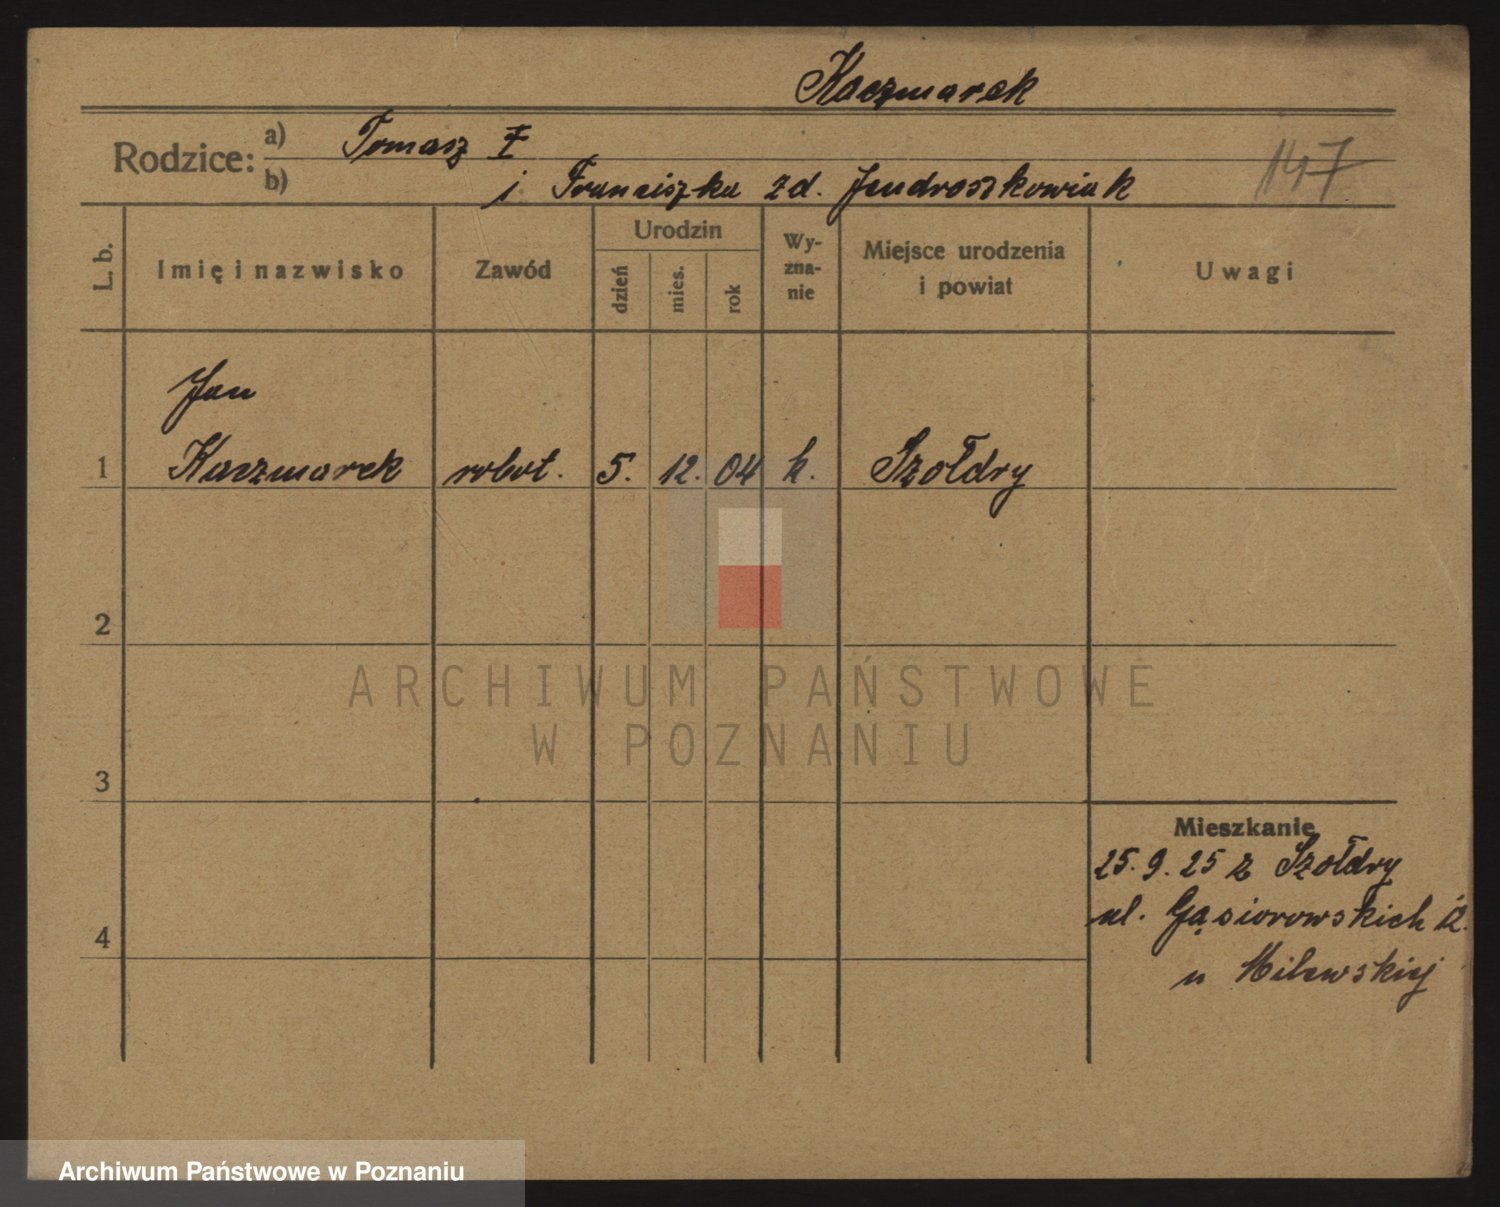 Kaczmarek
Rodzice: a) Tomasz
b) i Franciszka zd. Jendroszkowiak
147
L. b. Imię i nazwisko Zawód Urodzin dzień mies. rok Wy-zna-nie Miejsce urodzenia i powiat Uwagi
Jan
1 Kaczmarek robot. 5. 12. 04 k. Szołdry
2
ARCHIWUM PAŃSTWOWE
W POZNANIU
3
Mieszkanie
25. 9. 25 z Szołdry
ul. Gąsiorowskich 12.
4
u Milewskiej
Archiwum Państwowe w Poznaniu